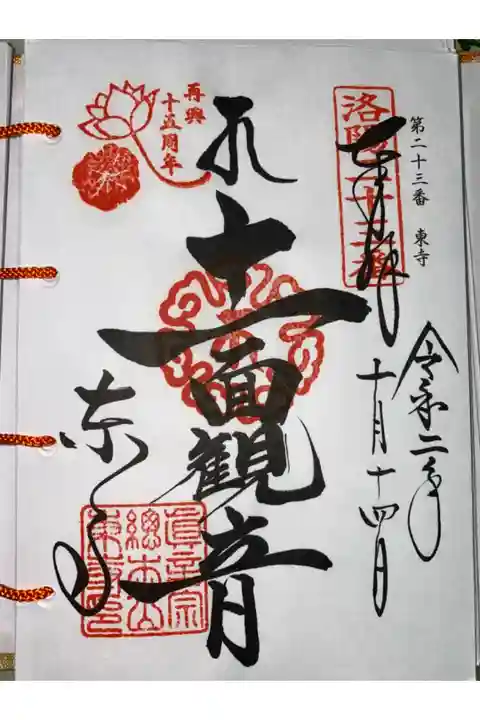 第二十三番 東寺
洛陽二十三番
奉拝
令和二年
十月十四日
十一面観音
東寺
再興
十五周年
真言宗
総本山
東寺印